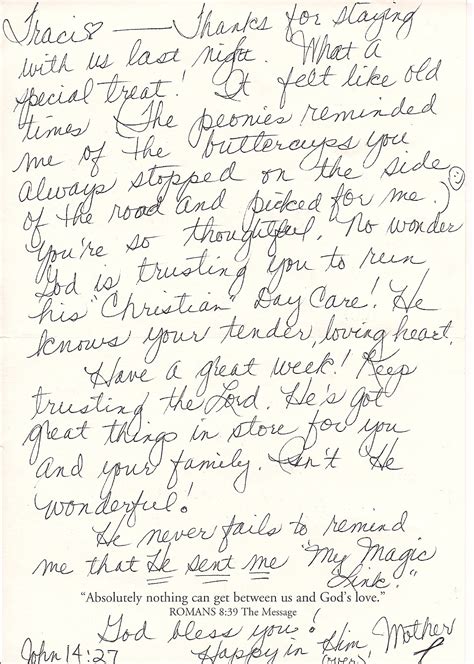 Traci♡ — Thanks for staying
with us last night. What a
special treat! It felt like old
times. The peonies reminded
me of the buttercups you
always stopped on the side
of the road and picked for me.)☺
You're so thoughtful. No wonder
God is trusting you to run
his "Christian" Day Care! He
knows your tender, loving heart.
Have a great week! Keep
trusting the Lord. He's got
great things in store for you
and your family. Isn't He
wonderful!
He never fails to remind
me that He sent me "My Magic
Link."
"Absolutely nothing can get between us and God's love."
ROMANS 8:39 The Message
God bless you!
John 14:27
Happy in Him, Mother
(over)